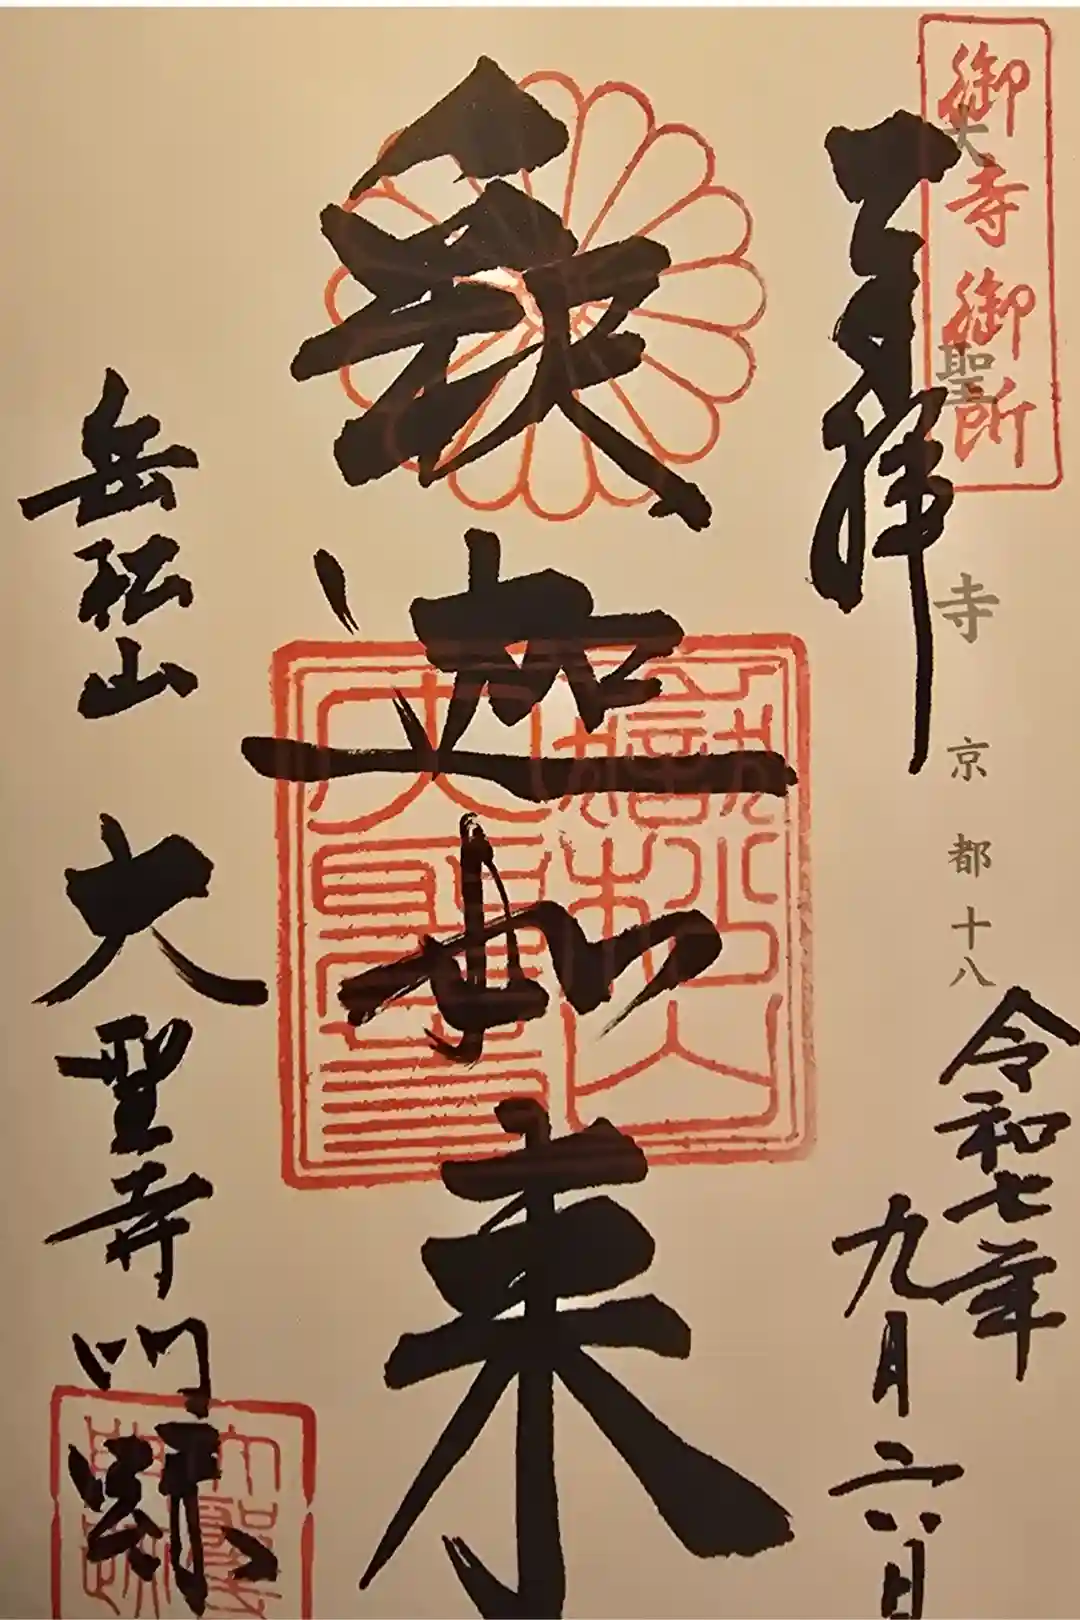 御寺御所
奉拝
大聖寺 京都十八
令和七年
九月二六日
釈迦如来
嶽松山
大聖寺
岳松山 大聖寺門跡